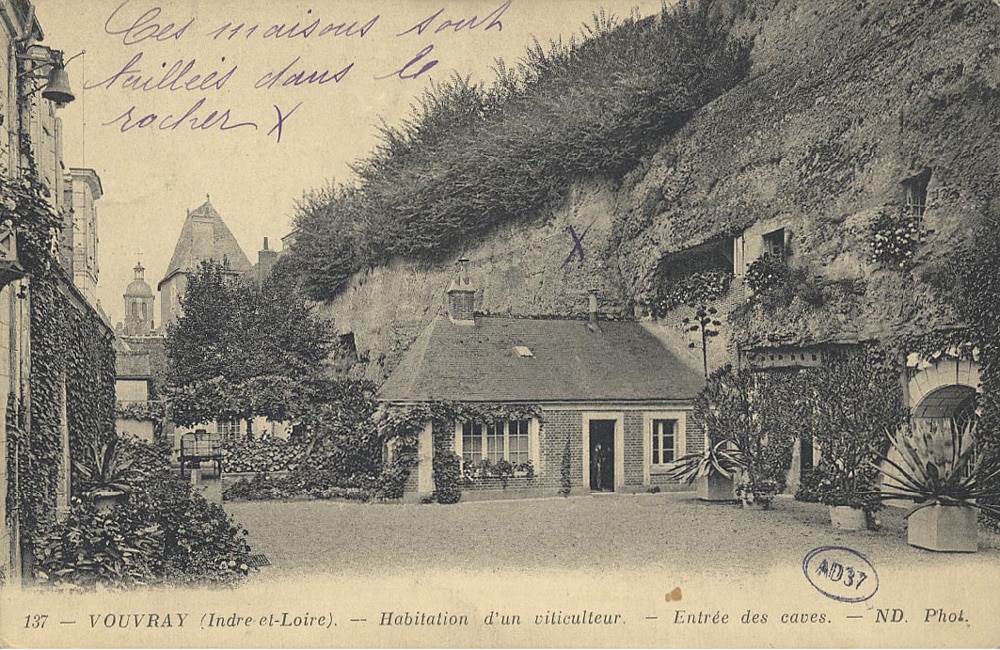 Ces maisons sont
taillées dans le
rocher X
X
AD37
137 — VOUVRAY (Indre-et-Loire). — Habitation d'un viticulteur. — Entrée des caves. — ND. Phot.